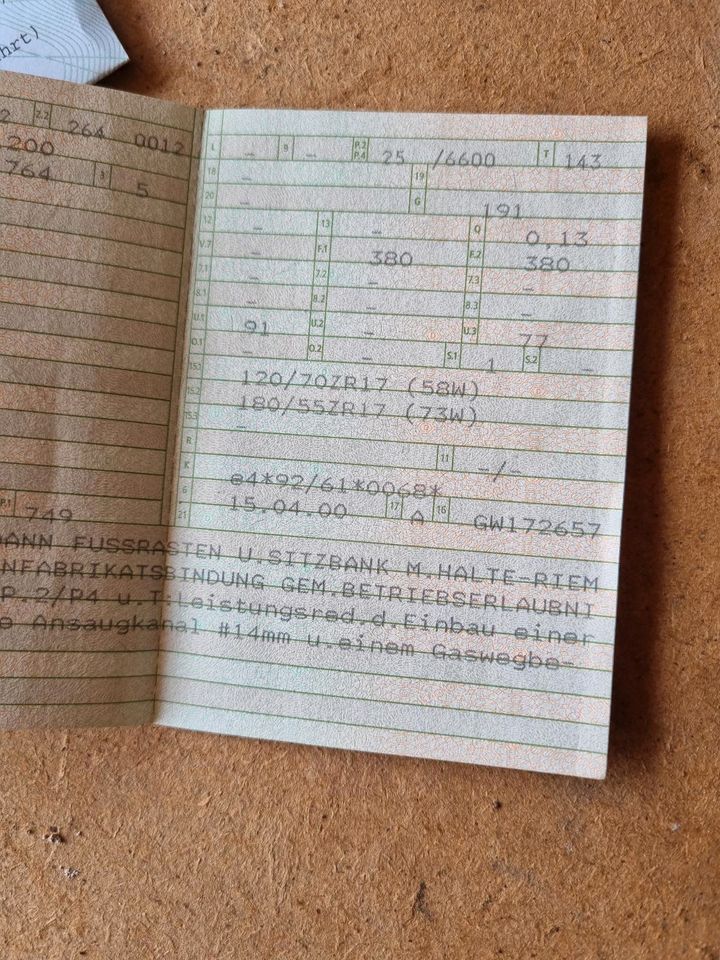 hrt)
2 2.2 264 0012
200
764 3 5
L - 9 - P.2 P.4 25 /6600 T 143
18 - 19
20 - G 191
12 - 13 - Q 0,13
V.7 - F.1 380 F.2 380
7.1 - 7.2 - 7.3 -
8.1 - 8.2 - 8.3 -
U.1 91 U.2 - U.3 77
O.1 - O.2 - S.1 1 S.2 -
15.1 120/70ZR17 (58W)
15.2 180/55ZR17 (73W)
15.3 -
R 11 -/-
K e4*92/61*0068*
6 15.04.00 17 A 16 GW172657
21
P.1 749
MANN FUSSRASTEN U.SITZBANK M.HALTE-RIEM
NFABRIKATSBINDUNG GEM.BETRIEBSERLAUBNI
P.2/P4 u.T:Leistungsred.d.Einbau einer
e Ansaugkanal #14mm u.einem Gaswegbe-